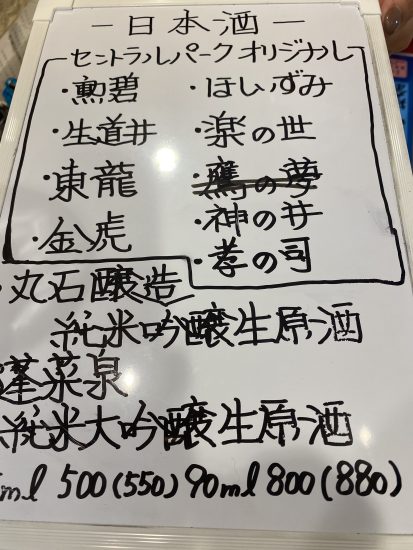 －日本酒－
セントラルパークオリジナル
・勲碧
・生道井
・東龍
・金虎
・ほしいずみ
・楽の世
・鷹の夢
・神の井
・孝の司
・丸石醸造
純米吟醸生原酒
蓬莱泉
純米大吟醸生原酒
ml 500(550) 90ml 800(880)